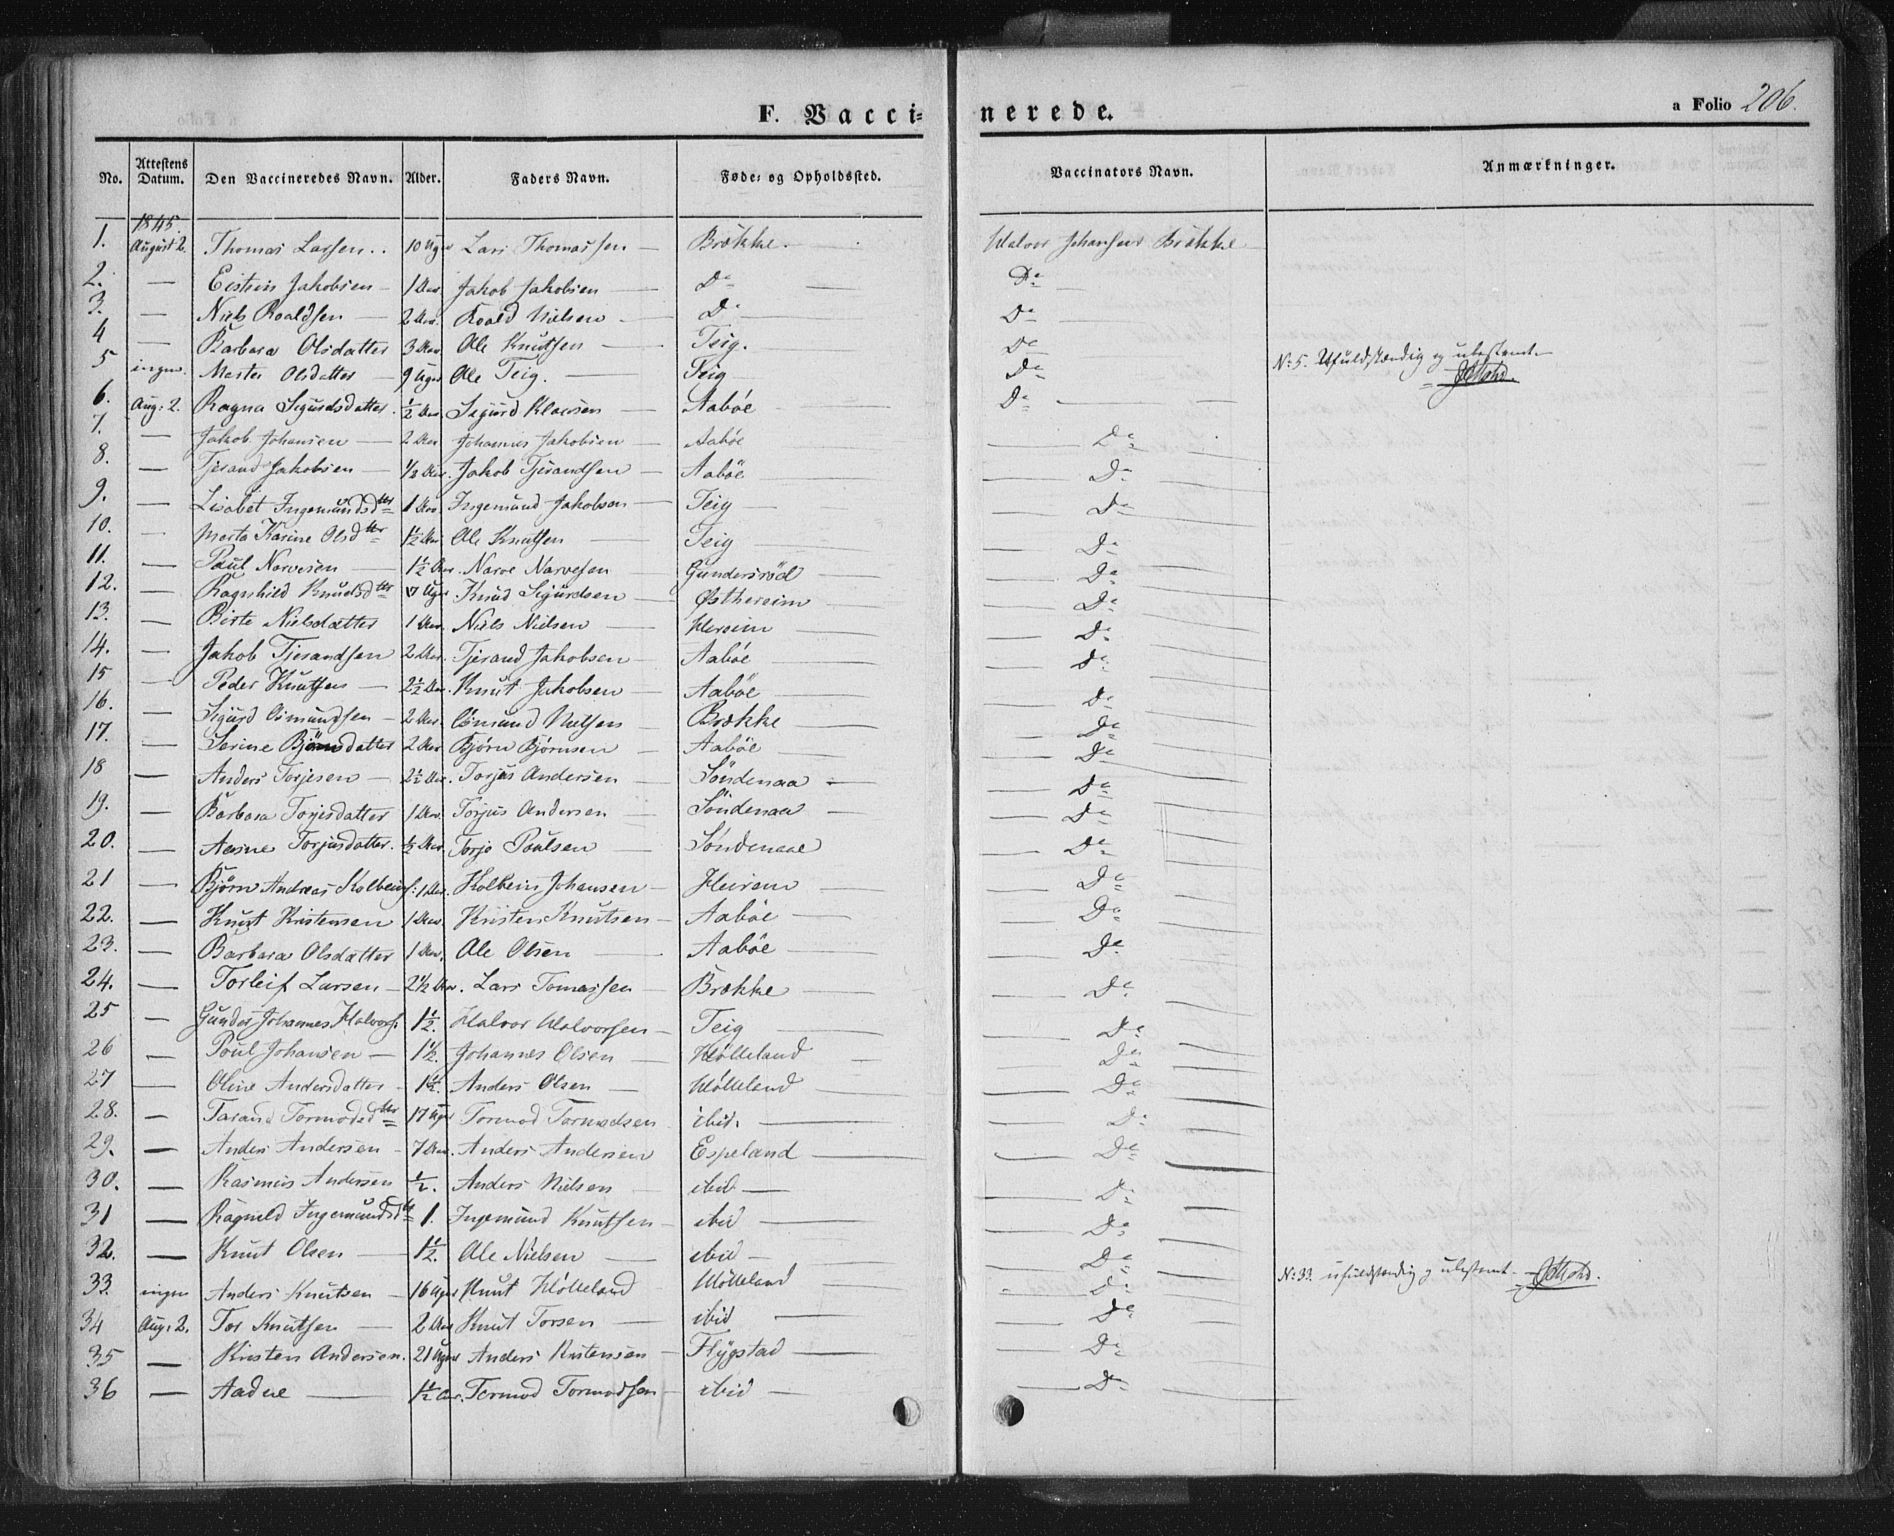 F. Vaccinerede. a Folio 206.
No. Attestens Datum. Den Vaccineredes Navn. Alder. Faders Navn. Føde- og Opholdssted. Vaccinators Navn. Anmærkninger.
1845
1. August 2. Thomas Larsen 10 Uger Lars Thomassen Brøkke. Halvor Johansen Brøkke
2. — Eistein Jakobsen 1 Aar Jakob Jakobsen Do Do
3. — Niels Roaldsen 2 Aar. Roald Nielsen Do Do
4 — Barbara Olsdatter 3 Aar Ole Knutsen Teig. Do
5 ingen. Marta Olsdatter 9 Uger Ole Teig. Teig Do No. 5. Ufuldstændig og ubestemt.
6. Aug: 2. Ragna Sigurdsdatter ½ Aar Sigurd Klausen Aabøe Do
7. — Jakob Johansen 2 Aar Johannes Jakobsen Aabøe Do
8. — Tjerand Jakobsen ½ Aar. Jakob Tjerandsen Aabøe Do
9. — Lisabet Ingemundsdtr 1 Aar Ingemund Jakobsen Teig Do
10. — Marta Karine Olsdtr 1½ Aar Ole Knutsen Teig Do
11. — Paul Narvesen 1½ Aar. Narve Narvesen Gundersrød Do
12. — Ragnhild Knudsdtr Uger Knud Sigurdsen Østhereim Do
13. — Birte Nielsdatter 1 Aar. Niels Nielsen Hereim Do
14. — Jakob Tjerandsen 2 Aar. Tjerand Jakobsen Aabøe Do
15 — Peder Knutsen 2½ Aar. Knut Jakobsen Aabøe Do
16. — Sigurd Osmundsen 2 Aar. Osmund Nielsen Brøkke Do
17. — Serine Bjørnsdatter 2 Aar Bjørn Bjørnsen Aabøe Do
18 — Anders Torjesen 2½ Aar. Torjus Andersen Søndenaa Do
19. — Barbara Torjesdatter 1 Aar. Torjus Andersen Søndenaa Do
20. — Aasne Torjusdatter. ½ Aar. Torjo Poulsen Søndenaae Do
21 — Bjørn Andreas Kolbeins: 1 Aar. Kolbein Johansen Heirem Do
22. — Knut Kristensen 1 Aar Kristen Knutsen Aabøe Do
23. — Barbara Olsdatter 1 Aar. Ole Olsen Aabøe Do
24. — Torleif Larsen 2½ Aar. Lars Tomassen Brøkke Do
25 — Gunder Johannes Halvors. 1½. Halvor Halvorsen Teig Do
26 — Poul Johansen 1½. Johannes Olsen Hølleland Do
27 — Oline Andersdatter 1½. Anders Olsen Hølleland Do
28. — Tarand Tormodsdtr 17 Uger Tormod Tormodsen ibid. Do
29. — Anders Andersen 7 Aar. Anders Andersen Espeland Do
30. — Rasmus Andersen ½. Anders Nielsen ibid Do
31 — Ragneld Ingemundsdtr 1. Ingemund Knutsen ibid Do
32. — Knut Olsen 1½. Ole Nielsen ibid Do
33. ingen Anders Knutsen 16 Uger Knut Hølleland Hølleland Do No. 33. ufuldstændig og ubestemt.
34 Aug: 2. Tor Knutsen 2 Aar Knut Torsen ibid Do
35 — Kristen Andersen. 21 Uger Anders Kristensen Flygstad Do
36 — Aadne 1½ Aar. Tormod Tormodsen ibid Do